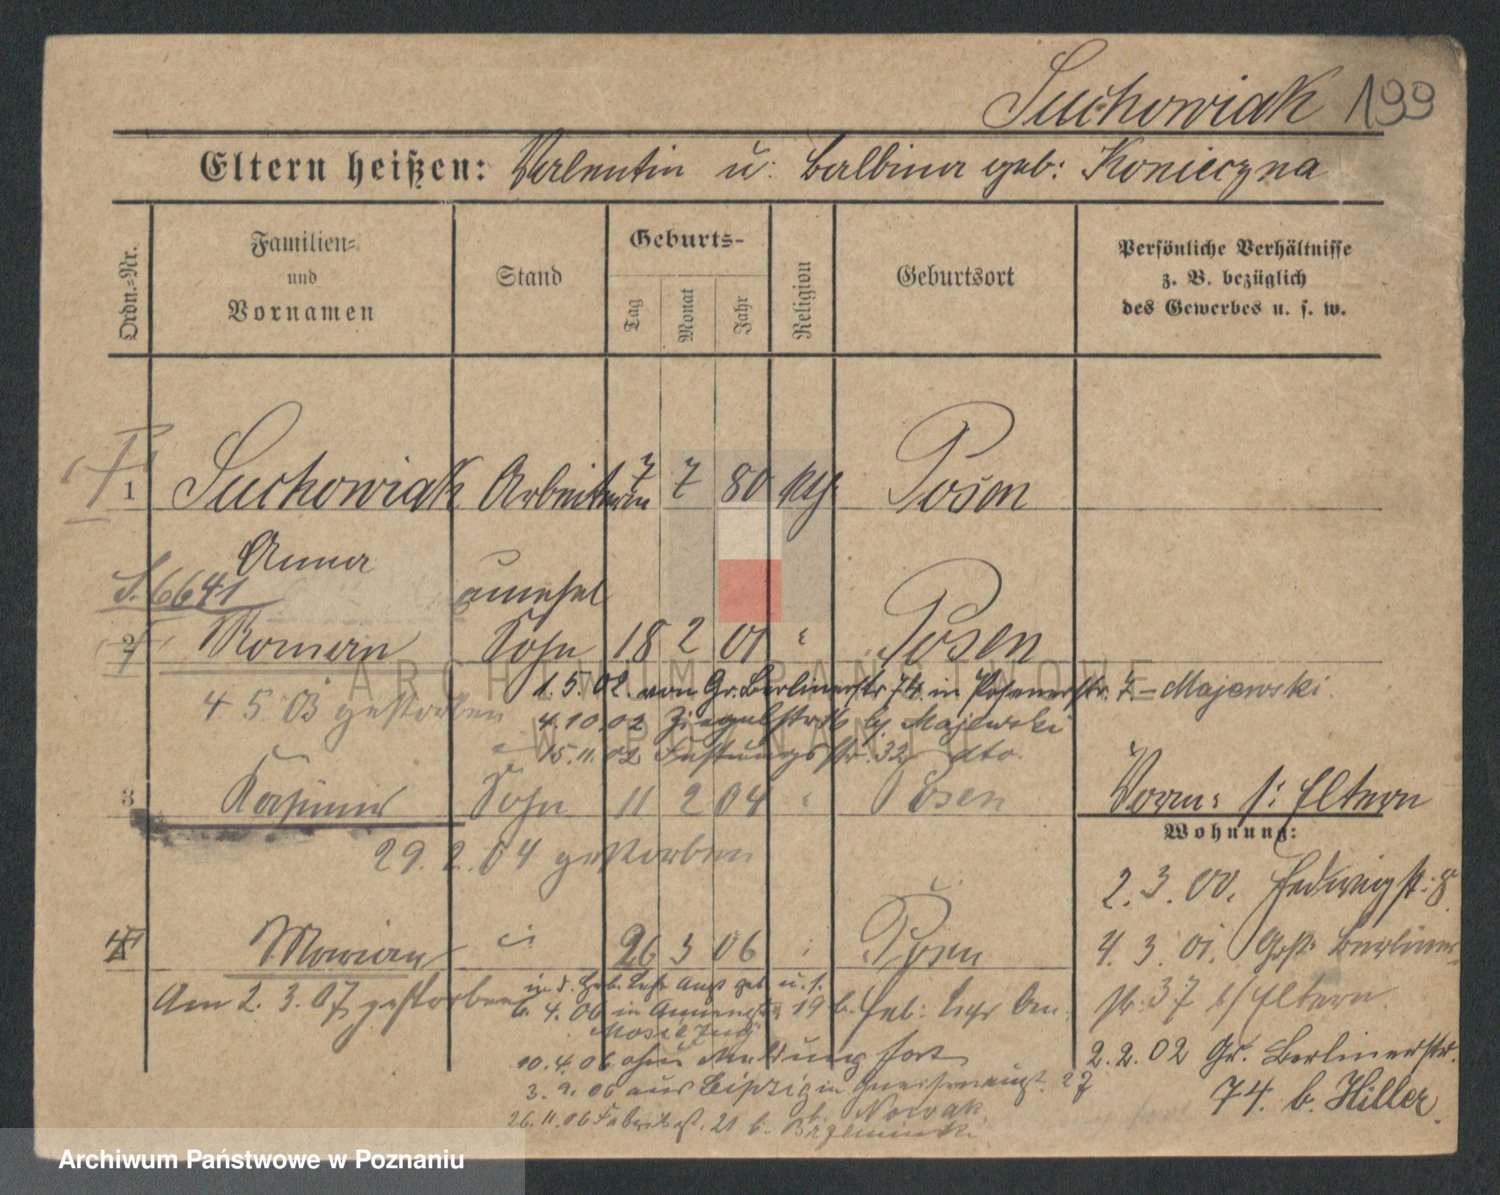 Suchowiak 199
Eltern heißen: Valentin u: Balbina geb: Konieczna
Ordn.-Nr.
Familien-
und
Vornamen
Stand
Geburts-
Tag
Monat
Jahr
Religion
Geburtsort
Persönliche Verhältnisse
z. B. bezüglich
des Gewerbes u. s. w.
1 Suchowiak Arbeiterin 7 7 80 Posen
Anna
S. 6641 unehel
2 Roman Sohn 18 2 01 " Posen
1. 5. 02. von Gr. Berlinerstr 74 in Posenerstr. 7 = Majewski.
4. 5. 03 gestorben 4. 10. 02 Ziegelstr b/ Majewski
15. 11. 02 Festungsstr. 32 dto.
3 Kasimir Sohn 11 2 04 " Posen
Vorm: s: Eltern
Wohnung:
29. 2. 04 gestorben
2. 3. 00. Hedwigst: 8
4 Marian 26 3 06 Posen
4. 3. 01. Groß Berliner
str. 37 b/ Eltern.
Am 2. 3. 07 gestorben
6. 4. 06 in 19 b.
10. 4. 06 ohne Meldung fort
2. 2. 02 Gr. Berlinerstr.
74. b. Hiller
3. 9. 06 aus Leipzig in Gneisenaust. 27
b. Nowak
26. 11. 06 21 b. Brzeminski
ARCHIWUM PAŃSTWOWE
W POZNANIU
Archiwum Państwowe w Poznaniu